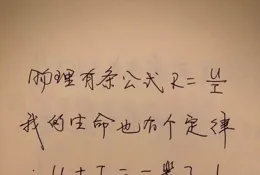 物理有条公式 R = U/I
我的生命也有个定律
U + I =